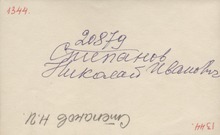 1344.
20879
Степанов
Николай Иванович
Степанов Н.И.
1344.